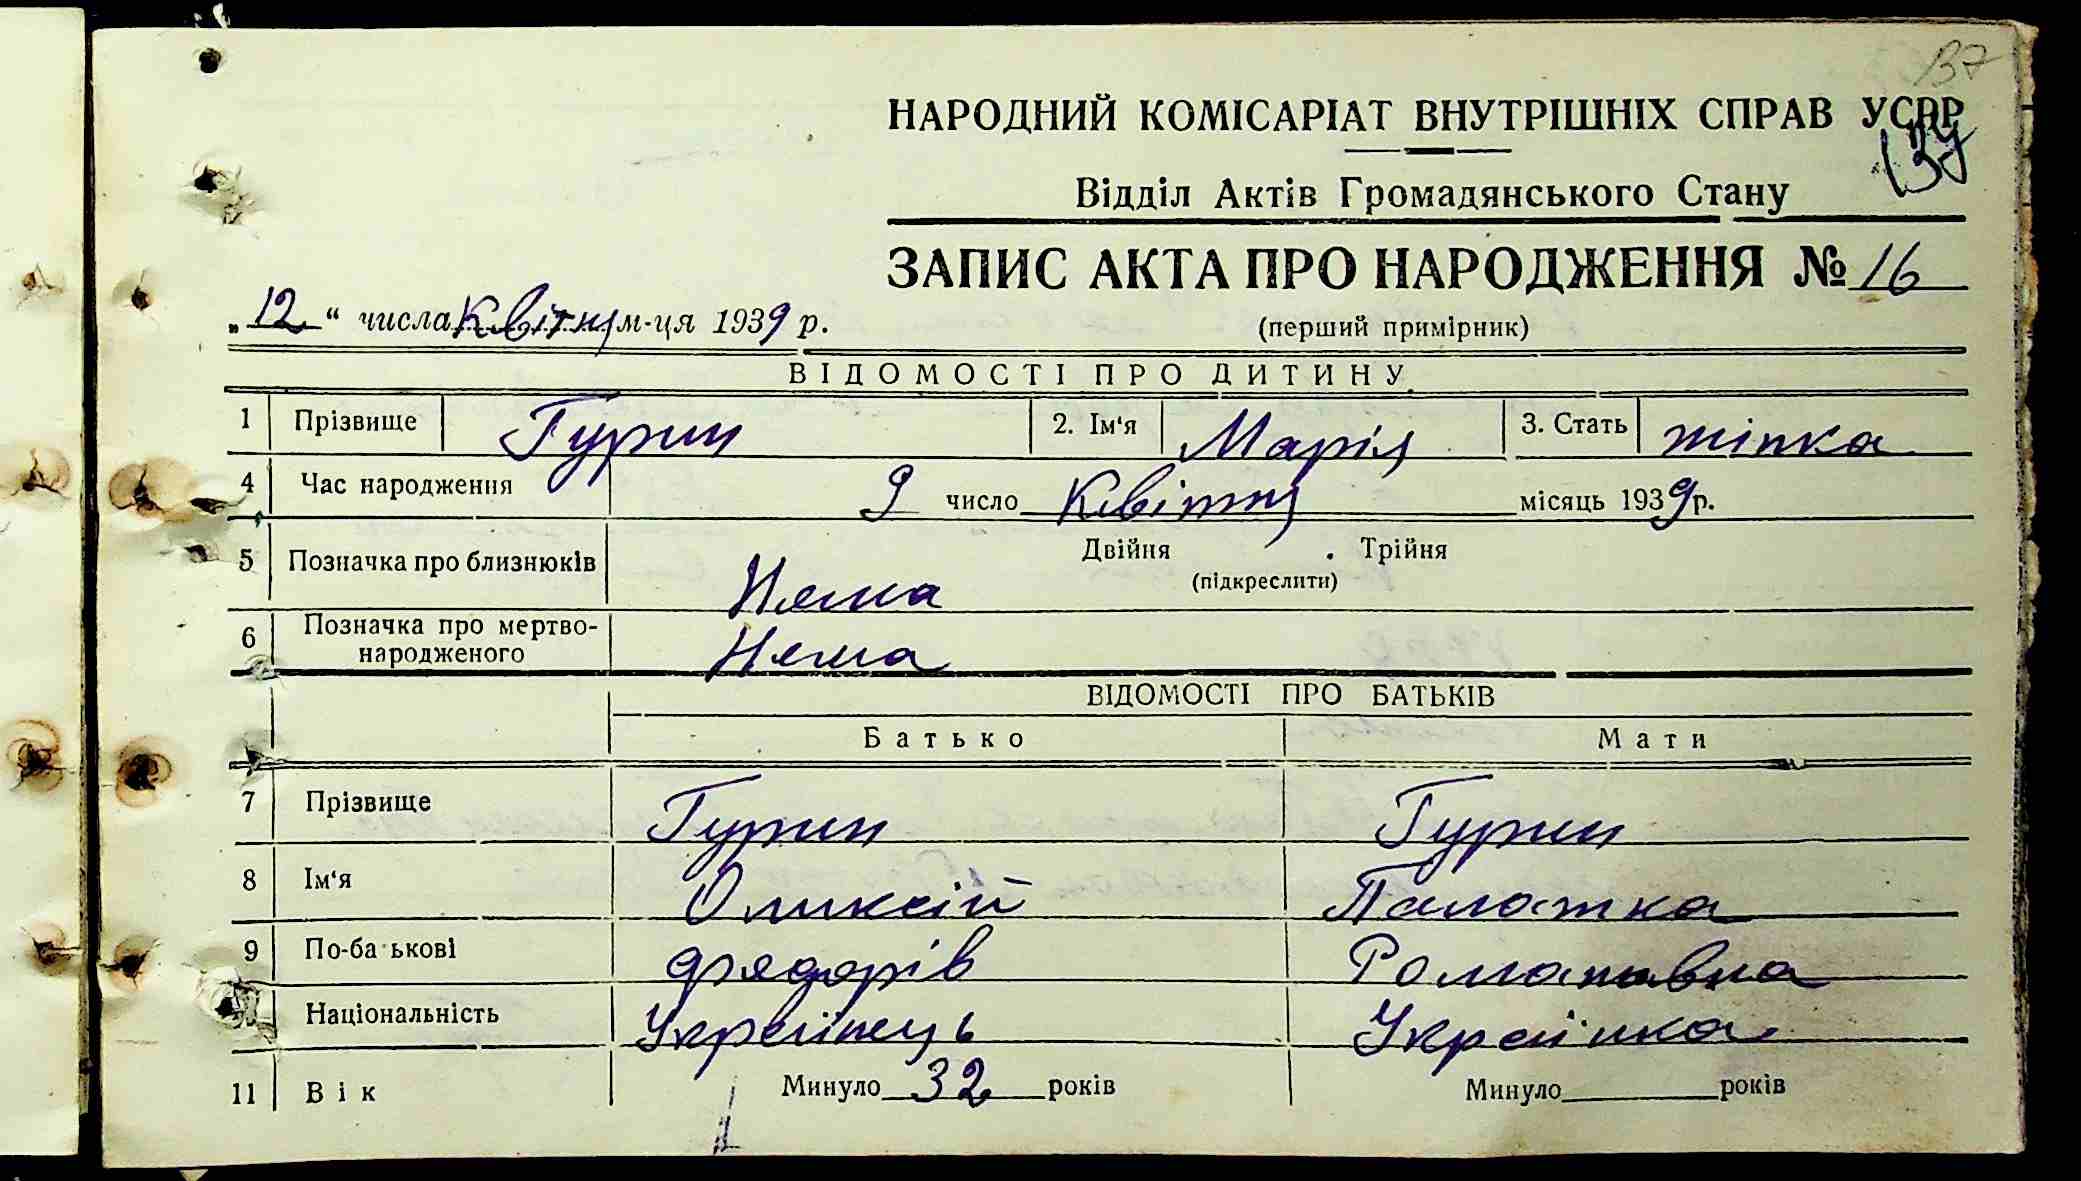 137
НАРОДНИЙ КОМІСАРІАТ ВНУТРІШНІХ СПРАВ УСРР
137
Відділ Актів Громадянського Стану
ЗАПИС АКТА ПРО НАРОДЖЕННЯ № 16
„12“ числа Квітня м-ця 1939 р.
(перший примірник)
ВІДОМОСТІ ПРО ДИТИНУ
1 Прізвище Гурин 2. Ім'я Марія 3. Стать жінка
4 Час народження 9 число Квітня місяць 1939 р.
5 Позначка про близнюків Нема Двійня Трійня
(підкреслити)
6 Позначка про мертво-
народженого Нема
ВІДОМОСТІ ПРО БАТЬКІВ
Батько Мати
7 Прізвище Гурин Гурин
8 Ім'я Оликсій Палажка
9 По-ба ькові Фядорів Романовна
Національність Украінець Украінка
11 Вік Минуло 32 років Минуло років